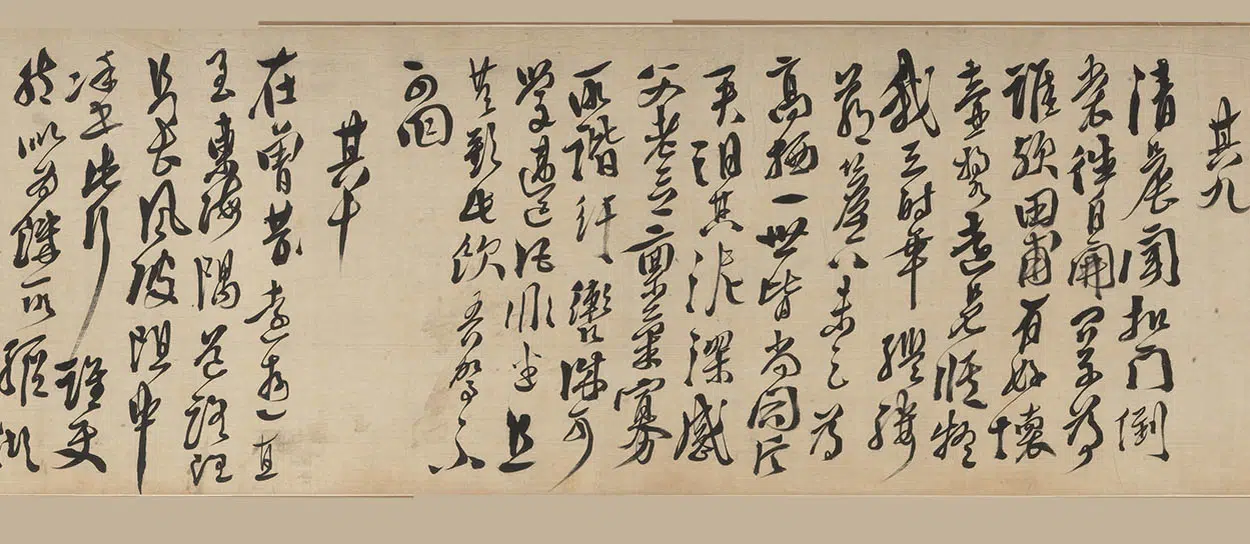 其九
清晨聞扣門倒
裳往自開問子為
誰歟田甫有好懷
壺漿遠見候疑
我與時乖繿縷
茅簷下未足為
高栖一世皆尚同願
君汩其泥深感
父老言稟氣寡
所諧紆轡誠可
學違己詎非迷且
共歡此飲吾駕不
可回
其十
在曾昔遠遊直
至東海隅道路迥
且長風波阻中
塗此行誰使
然似為饑所驅傾